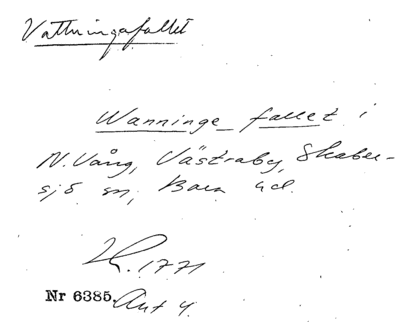 Vattningafallet
Wanninge fallet i
N. Vång, Västraby, Skaber-
sjö sn, Bara hd.
K. 1771
Nr 6385. Akt 4.